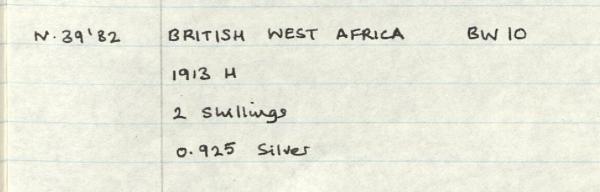 N.39'82 BRITISH WEST AFRICA BW 10
1913 H
2 Shillings
0.925 Silver